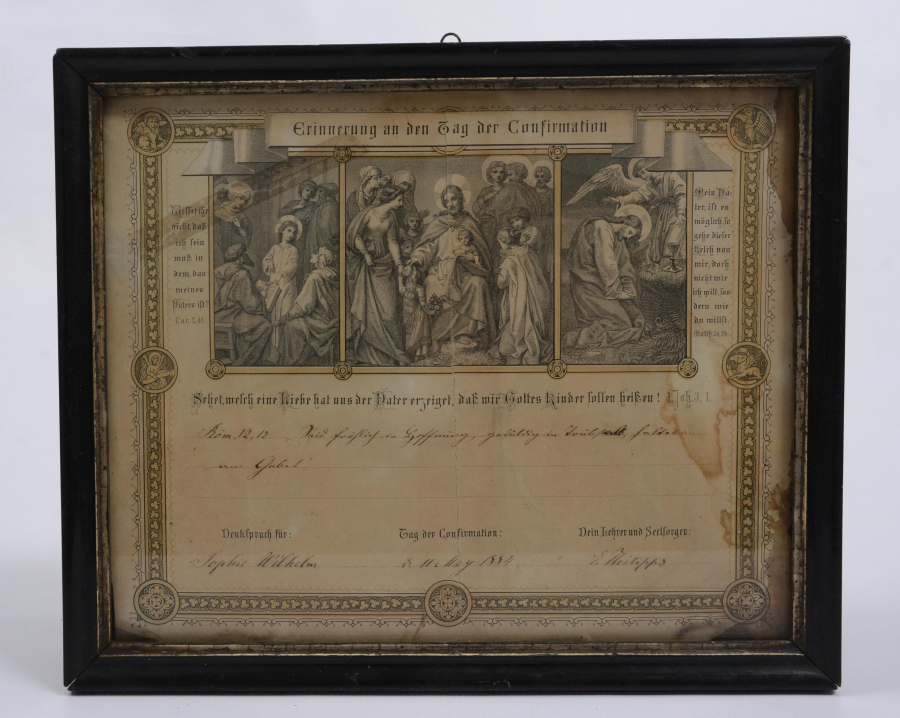 Erinnerung an den Tag der Confirmation
Wisset ihr
nicht, daß
ich sein
muß in
dem, das
meines
Vaters ist?
Luc. 2, 49.
Mein Va-
ter, ist es
möglich, so
gehe dieser
Kelch von
mir, doch
nicht wie
ich will, son-
dern wie
du willst.
Matth. 26, 39.
Sehet, welch eine Liebe hat uns der Vater erzeiget, daß wir Gottes Kinder sollen heißen! 1. Joh. 3, 1.
Röm. 12, 12. Seid fröhlich in Hoffnung, geduldig in Trübsal, haltet an
am Gebet
Denkspruch für:
Tag der Confirmation:
Dein Lehrer und Seelsorger:
Sophie Wilhelm
d. 11 May 1884